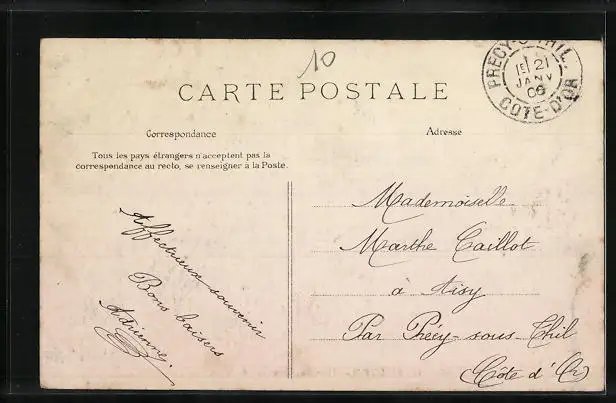 10
CARTE POSTALE
PRECY-S-THIL
21
JANV
06
COTE-D'OR
Correspondance
Adresse
Tous les pays étrangers n'acceptent pas la
correspondance au recto, se renseigner à la Poste.
Affectueux souvenir
Bons baisers
Adrienne.
Mademoiselle
Marthe Caillot
à Aisy
Par Précy-sous-Thil
(Côte d'Or)